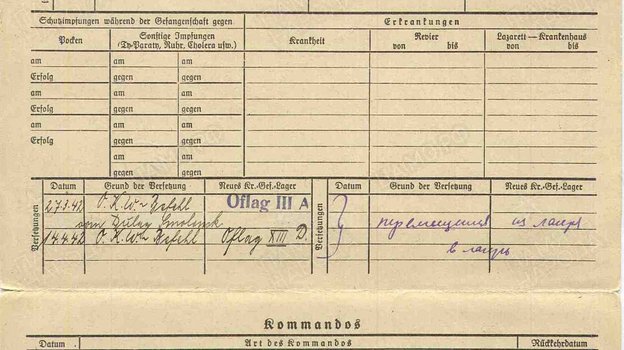 Schutzimpfungen während der Gefangenschaft gegen
Erkrankungen
Pocken
Sonstige Impfungen
(Ty-Paraty, Ruhr, Cholera usw.)
Krankheit
Revier
von bis
Lazarett — Krankenhaus
von bis
am am am
Erfolg gegen gegen
am am am
Erfolg gegen gegen
am am am
Erfolg gegen gegen
am am
gegen gegen
Versetzungen
Datum Grund der Versetzung Neues Kr.-Gef.-Lager
27.3.42 O.K.W.- Befehl Oflag III A
vom Dulag Smolensk
14.4.42 O.K.W.- Befehl Oflag XIII D.
Versetzungen
Datum Grund der Versetzung Neues Kr.-Gef.-Lager
из лагеря
в лагерь
Kommandos
Datum Art des Kommandos Rückkehrdatum